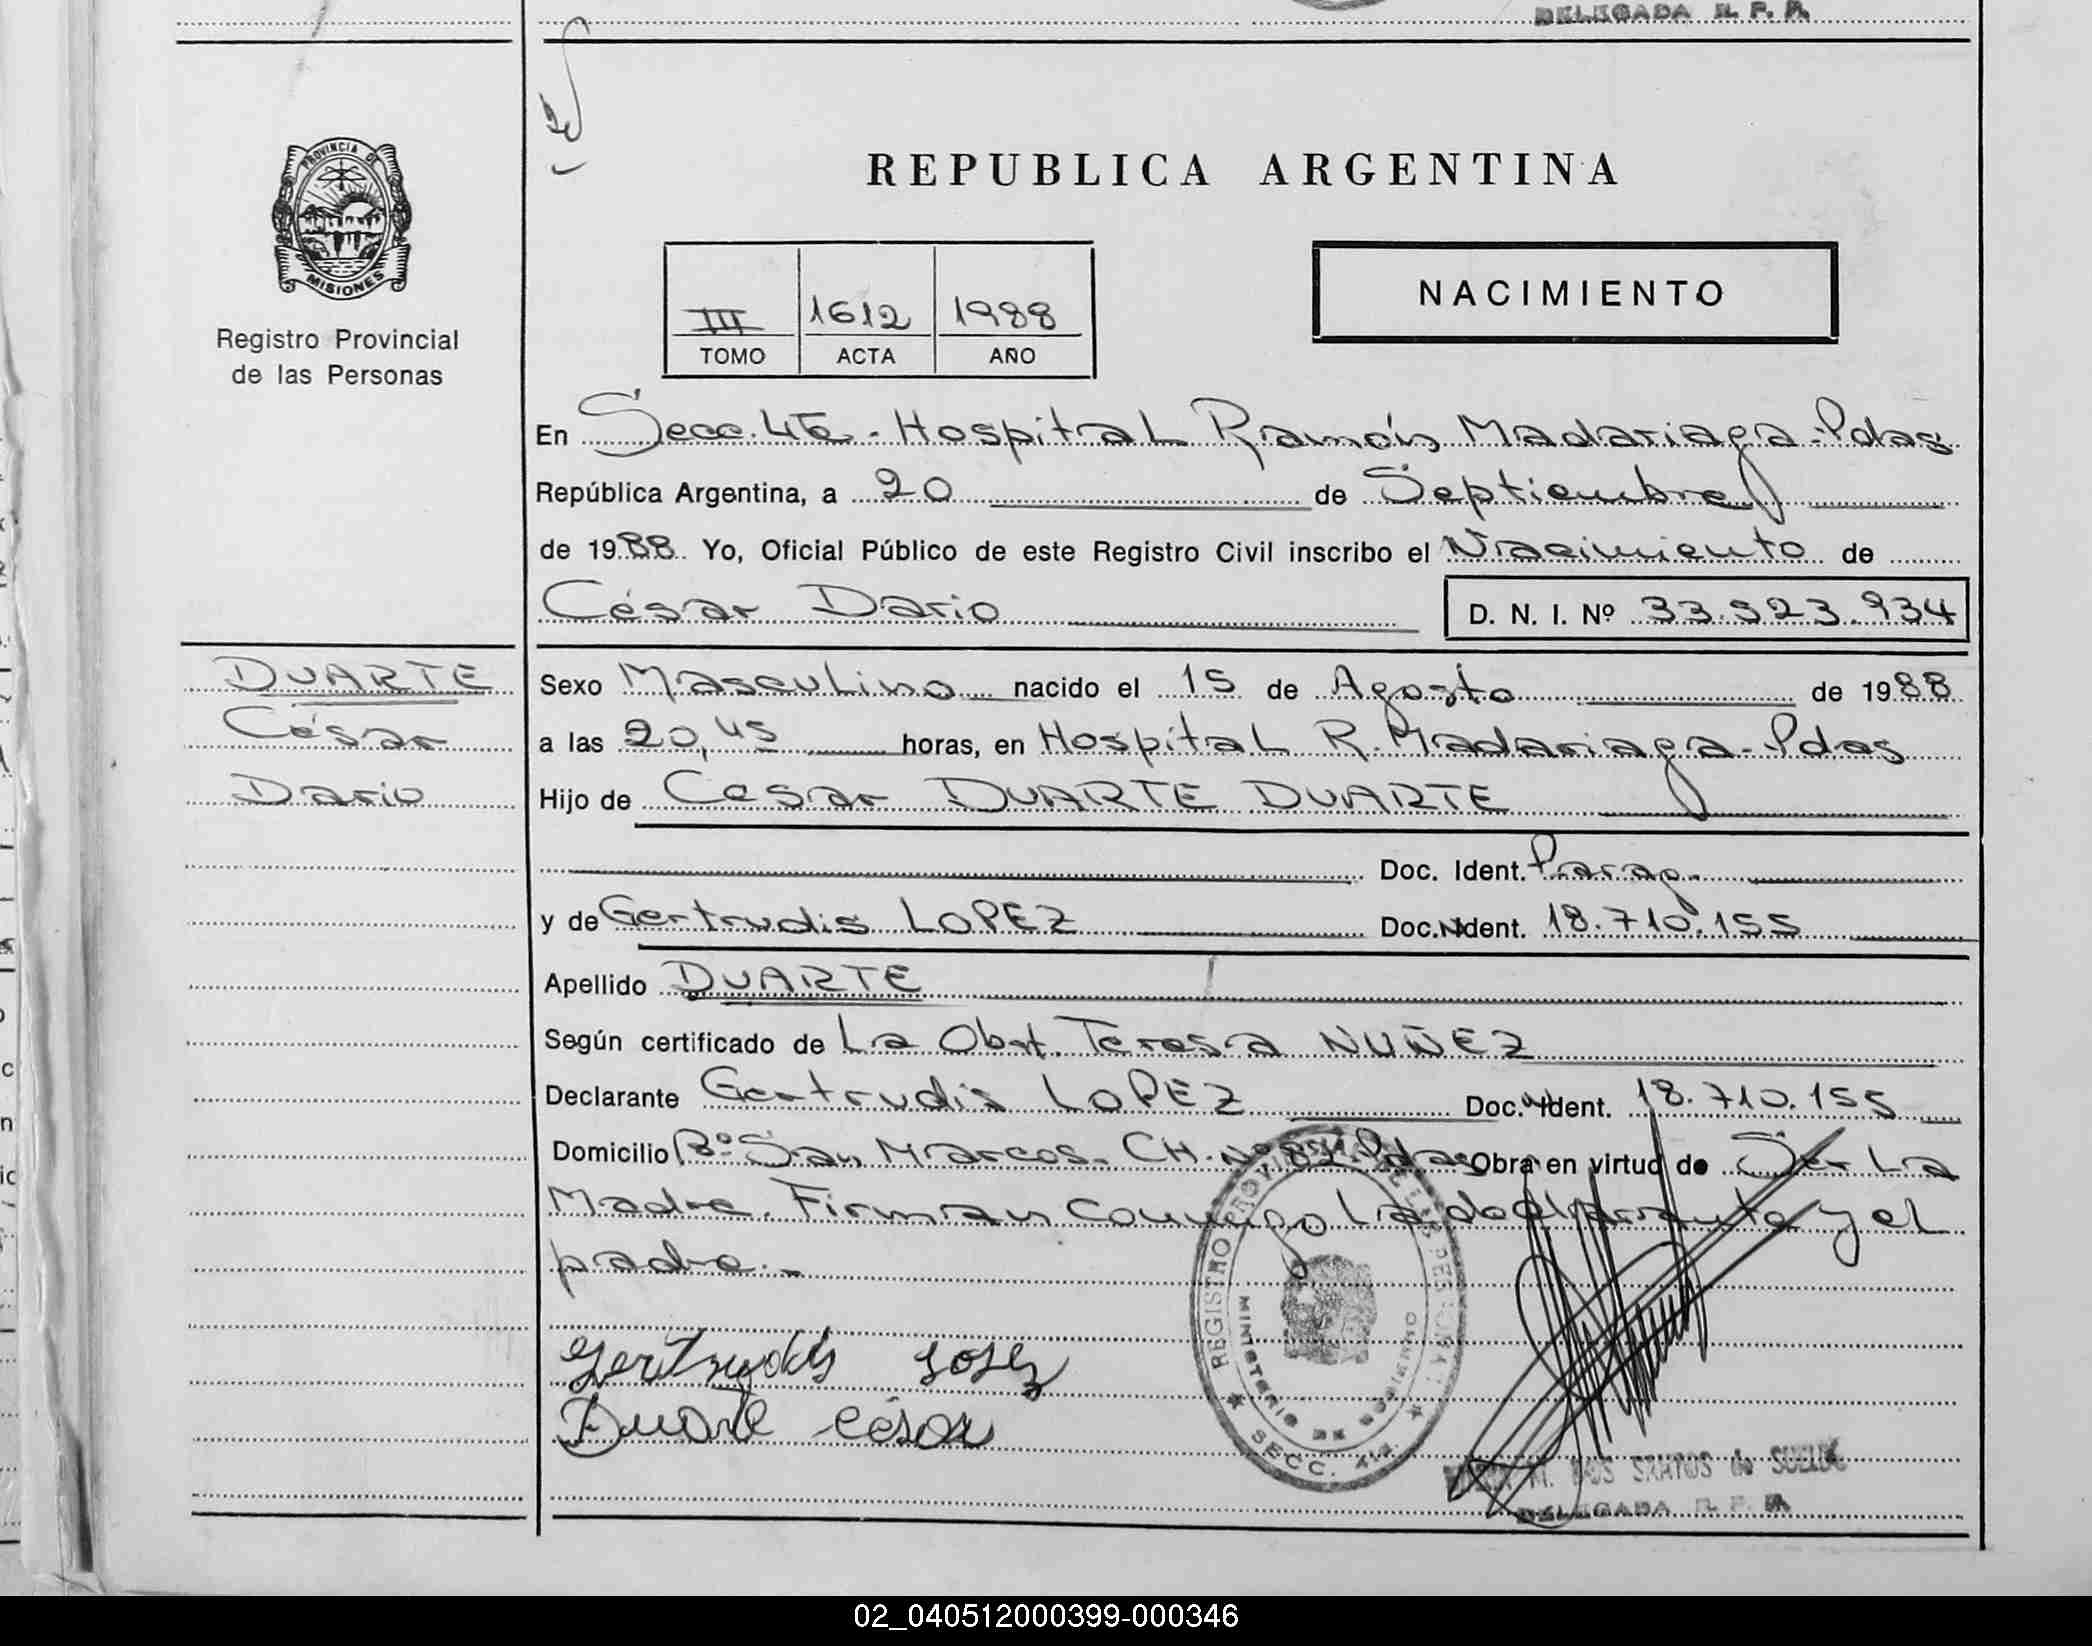 DELEGADA R. P. P.
PROVINCIA DE
MISIONES
Registro Provincial
de las Personas
REPUBLICA ARGENTINA
III 1612 1988
TOMO ACTA AÑO
NACIMIENTO
En Secc. 4ta. Hospital Ramón Madariaga - Pdas
República Argentina, a 20 de Septiembre
de 1988 Yo, Oficial Público de este Registro Civil inscribo el Nacimiento de
César Dario D. N. I. Nº 33.523.934
DUARTE
César
Dario
Sexo Masculino nacido el 15 de Agosto de 1988
a las 20,45 horas, en Hospital R. Madariaga - Pdas
Hijo de Cesar DUARTE DUARTE
Doc. Ident. Parag.
y de Gertrudis LOPEZ Doc. Ident. 18.710.155
Apellido DUARTE
Según certificado de La Obst. Teresa NUÑEZ
Declarante Gertrudis LOPEZ Doc. Ident. 18.710.155
Domicilio Bº San Marcos. CH. Nº 82 Pdas Obra en virtud de Ser La
Madre. Firman conmigo La declarante y el
padre.-
Gertrudis Lopez
Duarte César
REGISTRO PROVINCIAL DE LAS PERSONAS
MINISTERIO DE GOBIERNO
SECC. 4ta
M. DOS SANTOS de
DELEGADA R. P. P.
02_040512000399-000346